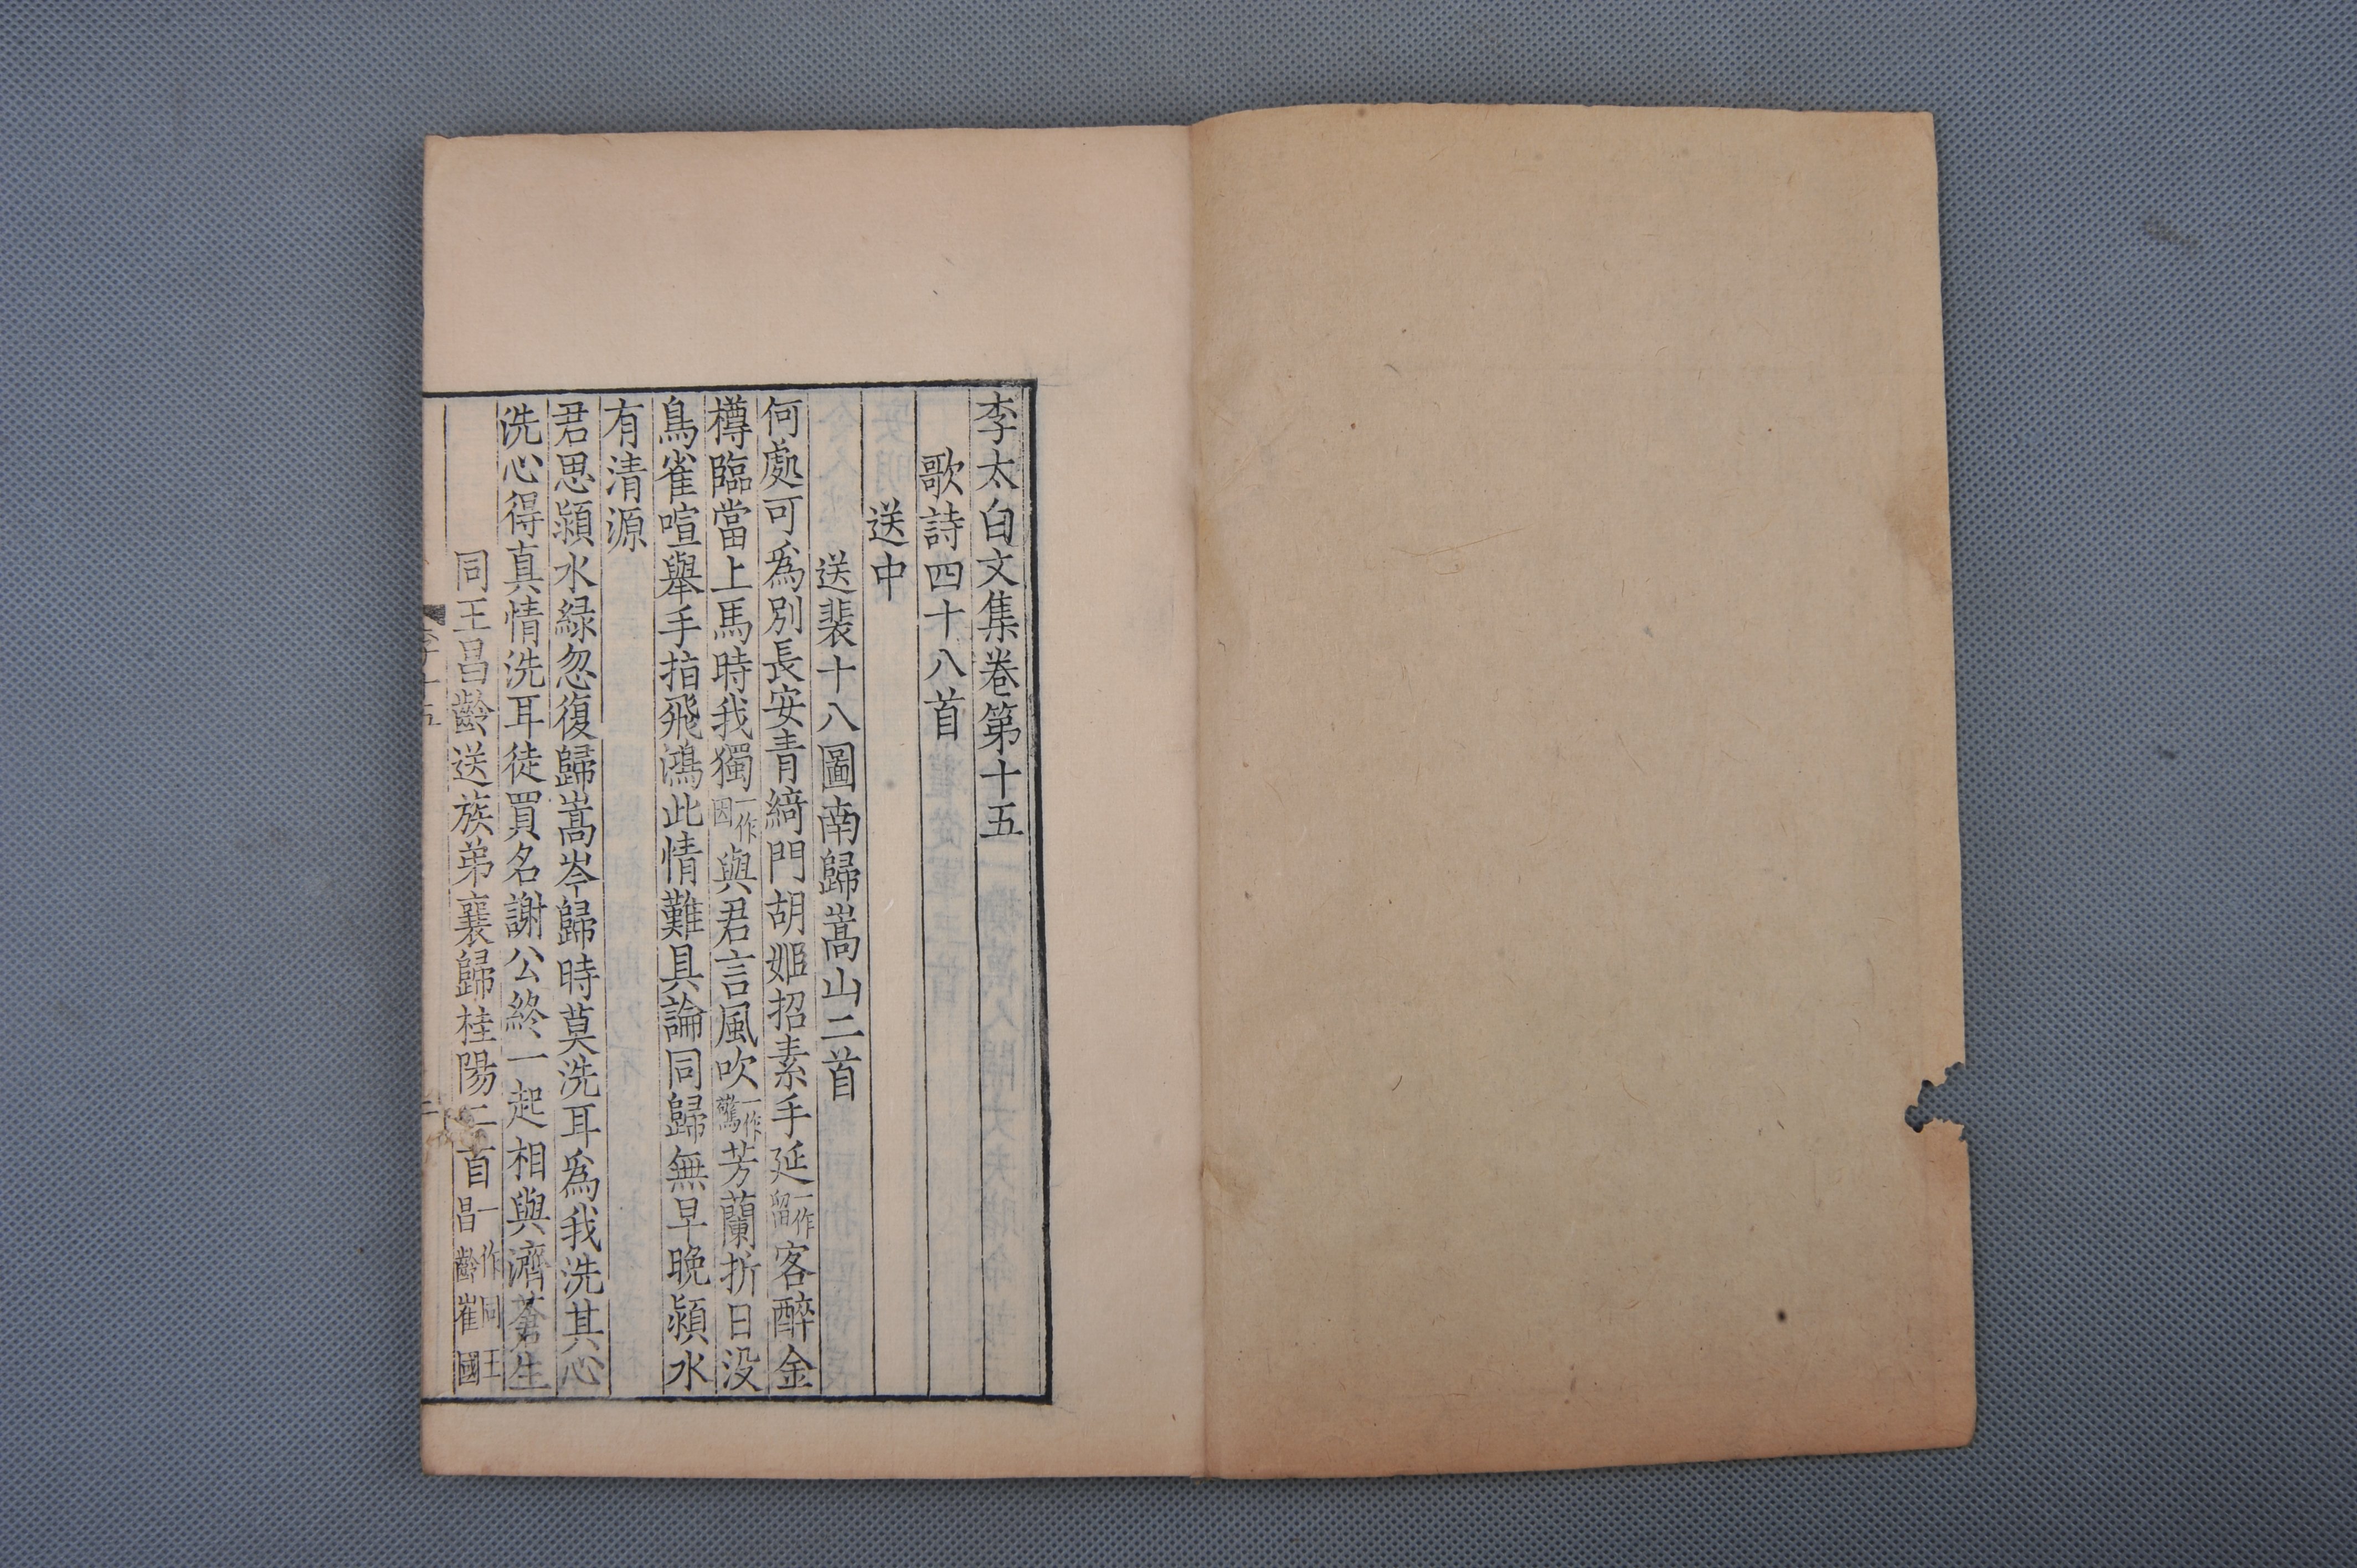 李太白文集卷第十五
歌詩四十八首
送中
送裴十八圖南歸嵩山二首
何處可爲別長安青綺門胡姬招素手延一作留客醉金
樽臨當上馬時我獨一作因與君言風吹一作驚芳蘭折日没
鳥雀喧舉手指飛鴻此情難具論同歸無早晚潁水
有清源
君思潁水緑忽復歸嵩岑歸時莫洗耳爲我洗其心
洗心得真情洗耳徒買名謝公終一起相與濟蒼生
同王昌齡送族弟襄歸桂陽二首一作同王昌齡崔國